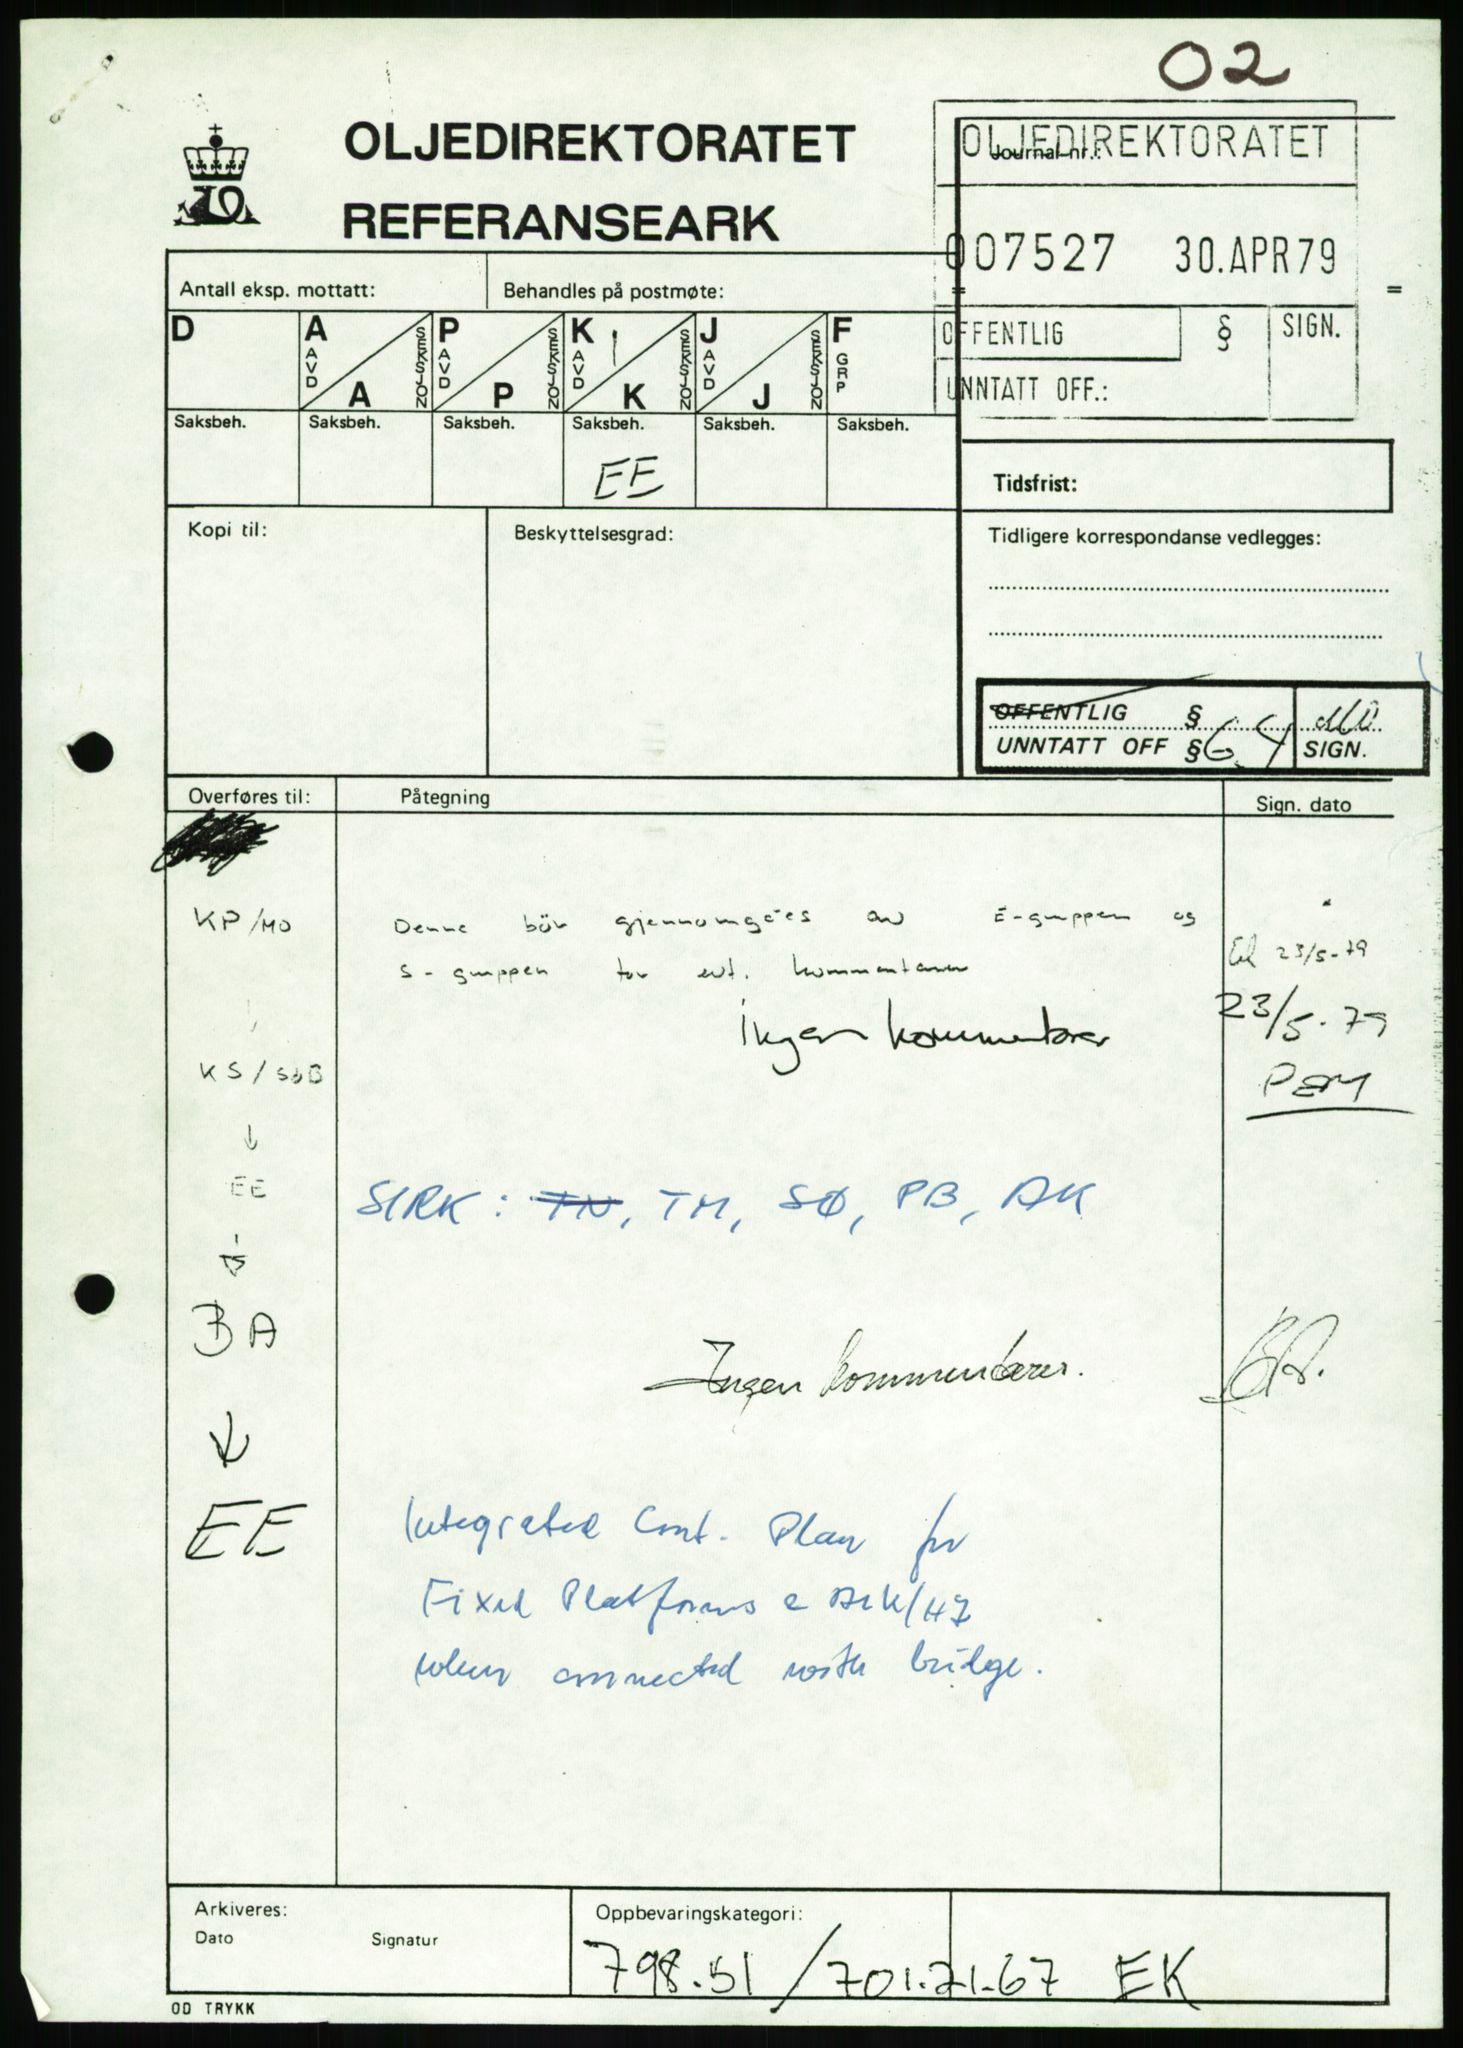 02
OLJEDIREKTORATET
REFERANSEARK
Journal nr.:
OLJEDIREKTORATET
007527 30. APR 79
OFFENTLIG § SIGN.
UNNTATT OFF.:
Antall eksp. mottatt: Behandles på postmøte:
D A AVD A SEKSJON P AVD P SEKSJON K AVD K SEKSJON J AVD J SEKSJON F GRP
Saksbeh. Saksbeh. Saksbeh. Saksbeh. Saksbeh. Saksbeh.
EE
Tidsfrist:
Kopi til: Beskyttelsesgrad: Tidligere korrespondanse vedlegges:
OFFENTLIG §
UNNTATT OFF § 6.4 SIGN.
Overføres til: Påtegning Sign. dato
KP/MO Denne bör gjennomgåes av E-gruppen og
S-gruppen for evt. kommentarer 23/5-79
Ingen kommentarer 23/5-79
KS/SøB PEM
↓
EE
SIRK: TN, TM, SØ, PB, AK
↓
BA
Ingen kommentarer. BA.
↓
EE
Integrated Cont. Plan for
Fixed Platforms e
when connected with bridge.
Arkiveres: Oppbevaringskategori:
Dato Signatur
798.51/701.21-67 EK
OD TRYKK